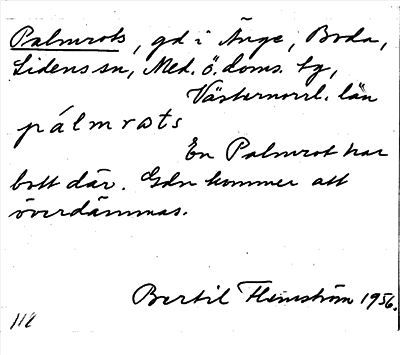 Palmrots, gd i Ånge, Boda,
Lidens sn, Med. ö. doms. tg,
Västernorrl. län
pálmrots
En Palmrot har
bott där. Gdn kommer att
överdämmas.
Bertil Flemström 1956.
118